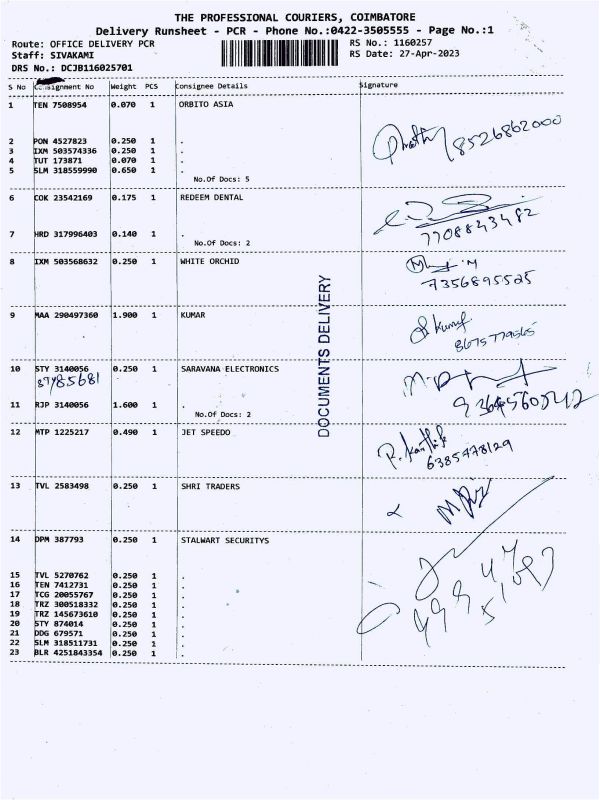 THE PROFESSIONAL COURIERS, COIMBATORE
Delivery Runsheet - PCR - Phone No.:0422-3505555 - Page No.:1
Route: OFFICE DELIVERY PCR
RS No.: 1160257
Staff: SIVAKAMI
RS Date: 27-Apr-2023
DRS No.: DCJB116025701
S No Consignment No Weight PCS Consignee Details Signature
1 TEN 7508954 0.070 1 ORBITO ASIA
2 PON 4527823 0.250 1 .
3 IXM 503574336 0.250 1 .
4 TUT 173871 0.070 1 .
5 SLM 318559990 0.650 1 .
No.Of Docs: 5
8526862000
6 COK 23542169 0.175 1 REDEEM DENTAL
7 HRD 317996403 0.140 1 .
No.Of Docs: 2
7708843482
8 IXM 503568632 0.250 1 WHITE ORCHID
7356895525
9 MAA 290497360 1.900 1 KUMAR
Kumar
10 STY 3140056 0.250 1 SARAVANA ELECTRONICS
11 RJP 3140056 1.600 1 .
No.Of Docs: 2
12 MTP 1225217 0.490 1 JET SPEEDO
R. Karthik
6385478129
13 TVL 2583498 0.250 1 SHRI TRADERS
14 DPM 387793 0.250 1 STALWART SECURITYS
15 TVL 5270762 0.250 1 .
16 TEN 7412731 0.250 1 .
17 TCG 20055767 0.250 1 .
18 TRZ 300518332 0.250 1 .
19 TRZ 145673610 0.250 1 .
20 STY 874014 0.250 1 .
21 DDG 679571 0.250 1 .
22 SLM 318511731 0.250 1 .
23 BLR 4251843354 0.250 1 .
DOCUMENTS DELIVERY